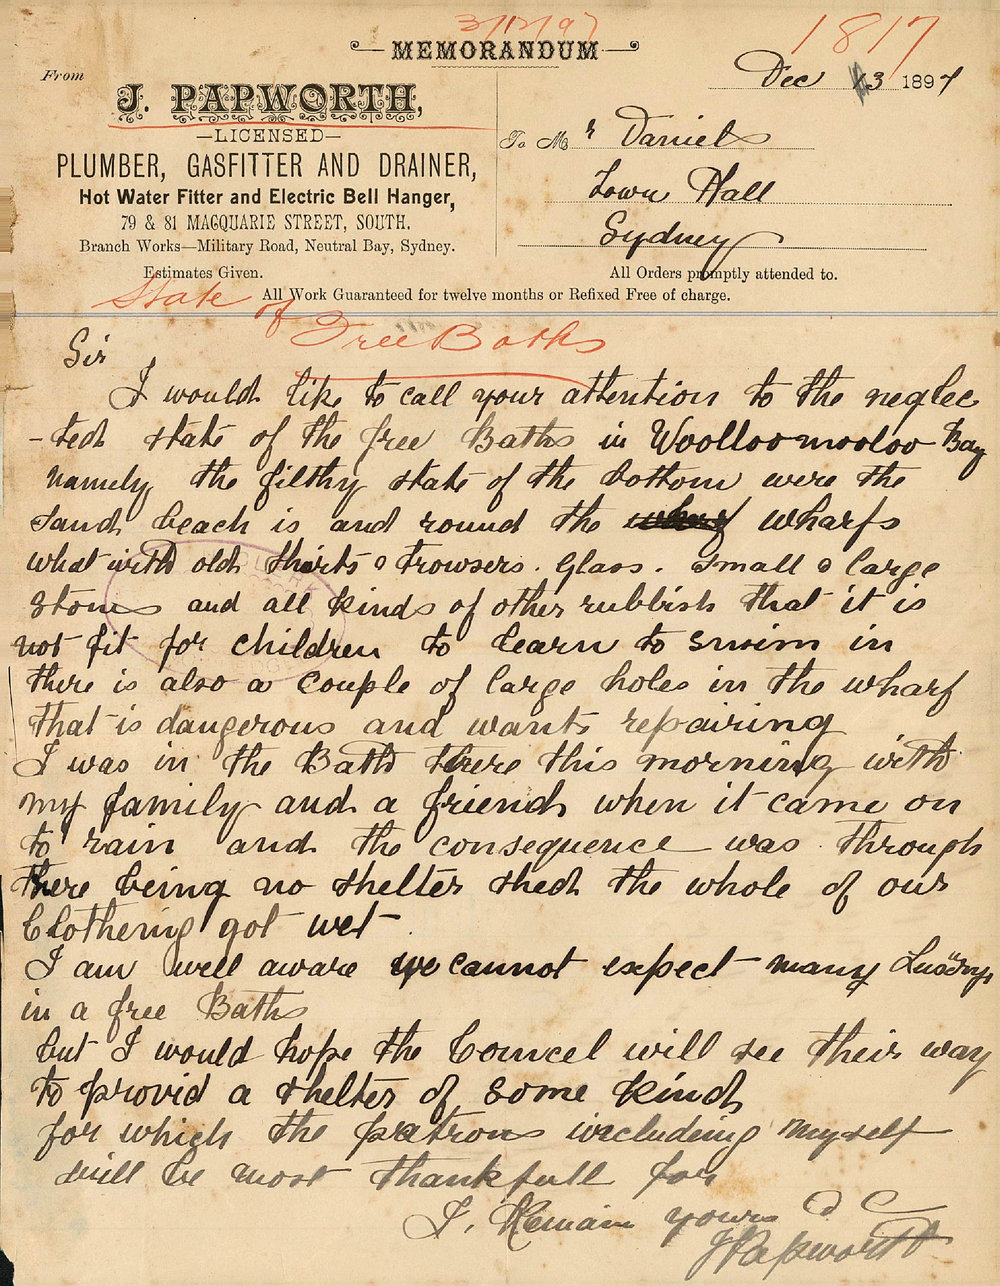 3/12/97
1817
MEMORANDUM
From
J. PAPWORTH,
—LICENSED—
PLUMBER, GASFITTER AND DRAINER,
Hot Water Fitter and Electric Bell Hanger,
79 & 81 MACQUARIE STREET, SOUTH.
Branch Works—Military Road, Neutral Bay, Sydney.
Estimates Given.
Dec 3 1897
To Mr Daniels
Town Hall
Sydney
All Orders promptly attended to.
All Work Guaranteed for twelve months or Refixed Free of charge.
State of
Free Baths
Sir
I would like to call your attention to the neglec
-ted state of the free Baths in Woolloomooloo Bay
namely the filthy state of the bottom were the
sand beach is and round the wharf wharfs
what with old shirts & trowsers. Glass. small & large
stones and all kinds of other rubbish that it is
not fit for children to learn to swim in
there is also a couple of large holes in the wharf
that is dangerous and wants repairing
I was in the Baths there this morning with
my family and a friend when it came on
to rain and the consequence was through
there being no shelter shed the whole of our
Clothering got wet
I am well aware we cannot expect many
in a free Baths
but I would hope the Councel will see their way
to provid a shelter of some kind
for which the patrons including myself
will be most thankfull for
I. Remain yours &C
J Papworth